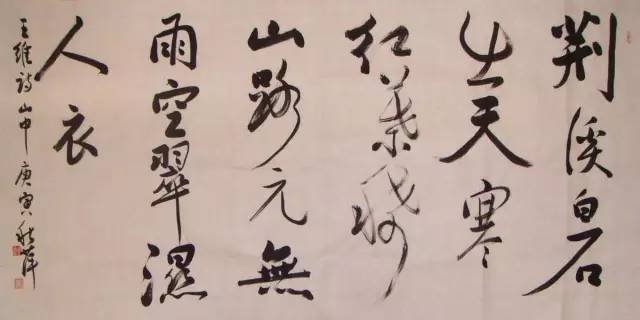 荆溪白石
出天寒
红葉稀
山路元無
雨空翠濕
人衣
王維詩山中 庚寅秋